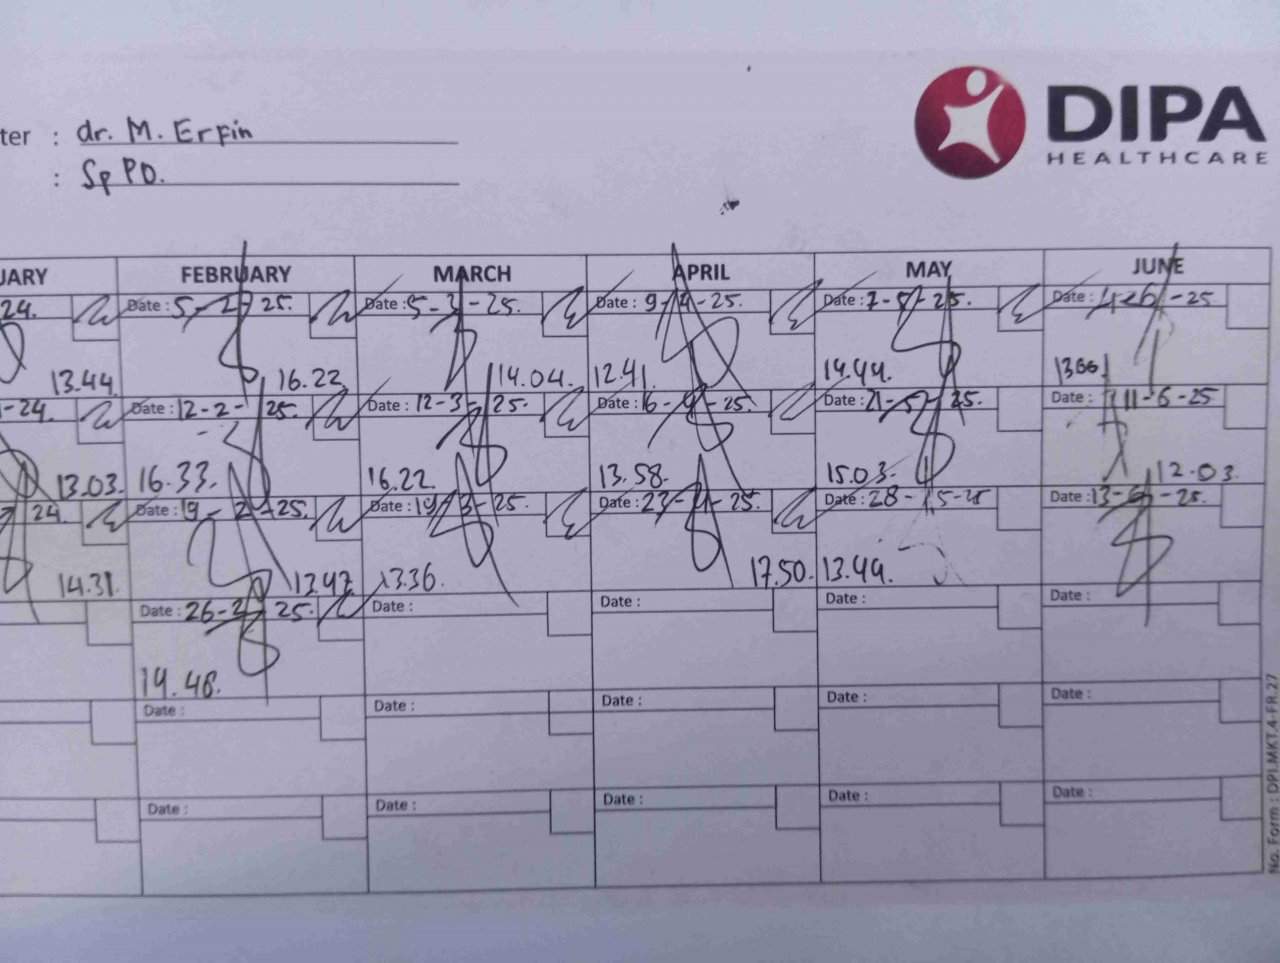 DIPA
HEALTHCARE
ter : dr. M. Erfin
: Sp PD.
UARY FEBRUARY MARCH APRIL MAY JUNE
24. Date : 5-2-25. Date : 5-3-25. Date : 9-4-25. Date : 7-5-25. Date : 4-6-25
13.44 16.22 14.04. 12.41. 14.44.
-24. Date : 12-2-25. Date : 12-3-25. Date : 16-4-25. Date : 21-5-25. Date : 11-6-25
13.03. 16.33. 16.22. 13.58. 15.03. 12.03.
24. Date : 19-2-25. Date : 19-3-25. Date : 23-4-25. Date : 28-5-25 Date : 13-6-25.
14.31. 13.47 13.36. 17.50. 13.49.
Date : 26-2-25. Date : Date : Date : Date :
14.48.
Date : Date : Date : Date : Date :
Date : Date : Date : Date : Date :
No. Form : DPI.MKT.4-FR.27